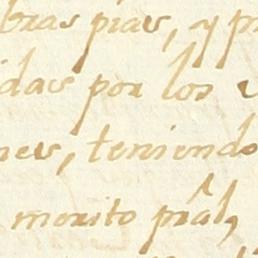 bras pias, y p
das por los
nes, teniendo
merito prál,